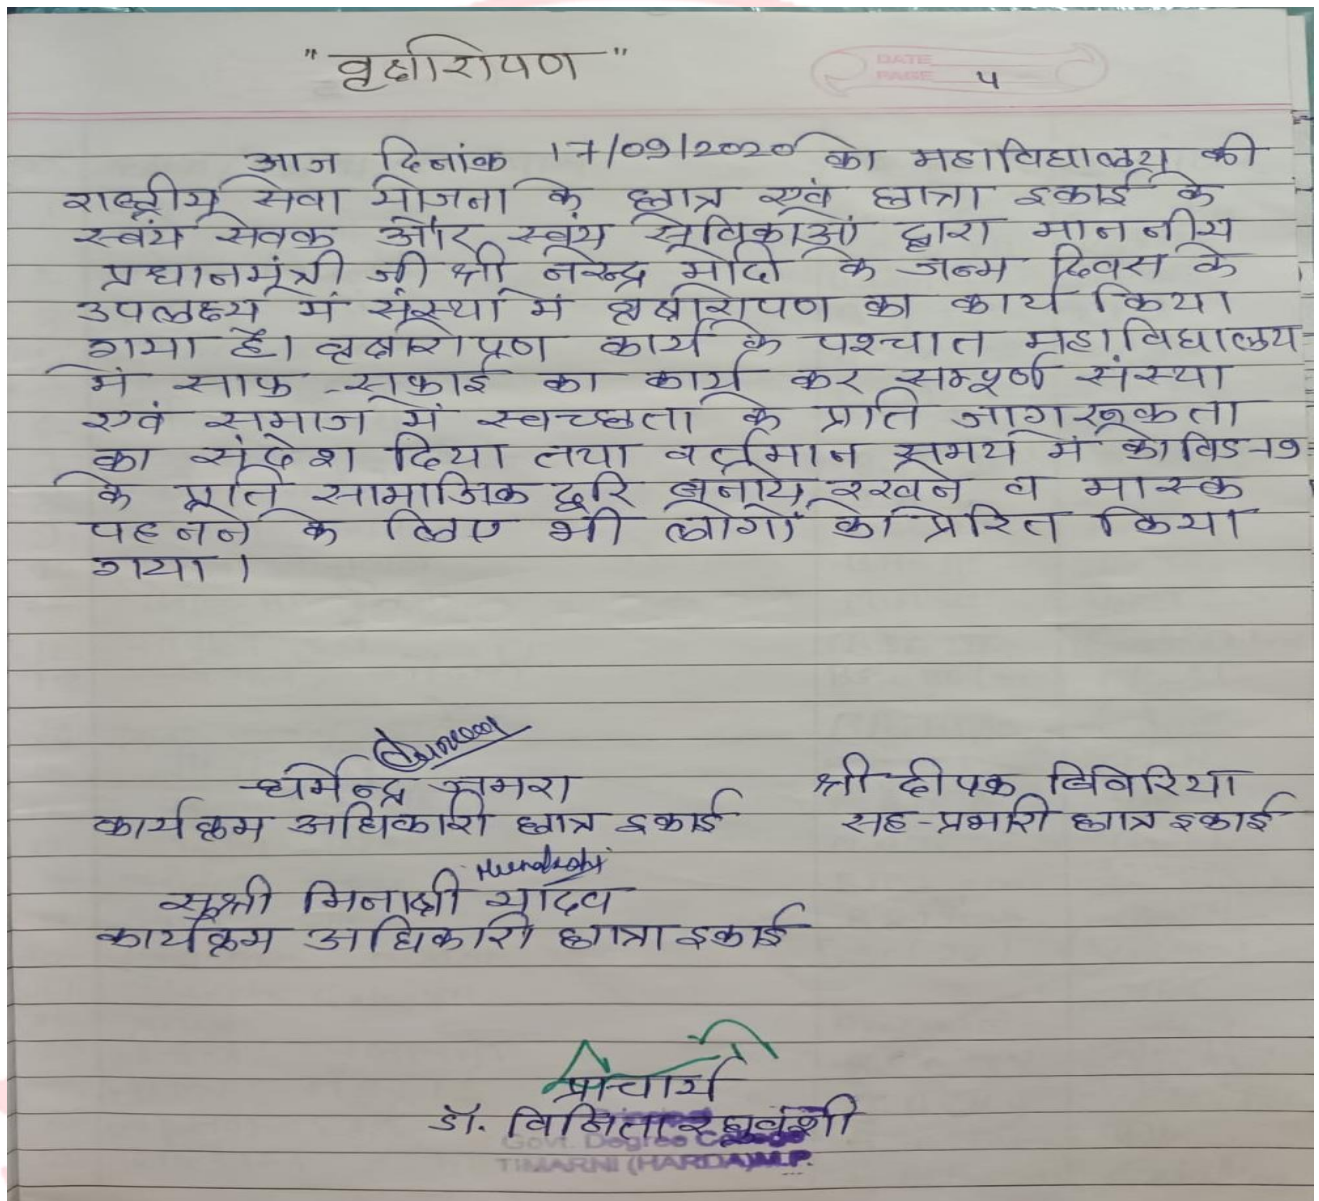 "वृक्षारोपण"
DATE
PAGE 4
आज दिनांक 17/09/2020 को महाविद्यालय की
राष्ट्रीय सेवा योजना के छात्र एवं छात्रा इकाई के
स्वंय सेवक और स्वंय सेविकाओं द्वारा माननीय
प्रधानमंत्री जी श्री नरेन्द्र मोदी के जन्म दिवस के
उपलक्ष्य में संस्था में वृक्षारोपण का कार्य किया
गया है। वृक्षारोपण कार्य के पश्चात महाविद्यालय
में साफ-सफाई का कार्य कर सम्पूर्ण संस्था
एवं समाज में स्वच्छता के प्रति जागरूकता
का संदेश दिया तथा वर्तमान समय में कोविड-19
के प्रति सामाजिक दूरि बनाये रखने व मास्क
पहनने के लिए भी लोगों को प्रेरित किया
गया।
धर्मेन्द्र जमरा श्री दीपक
कार्यक्रम अधिकारी छात्र इकाई सह-प्रभारी छात्र इकाई
सुश्री मिनाक्षी यादव
कार्यक्रम अधिकारी छात्रा इकाई
प्राचार्य
डॉ. विनिता रघुवंशी
Govt. Degree College
TIMARNI (HARDA) M.P.